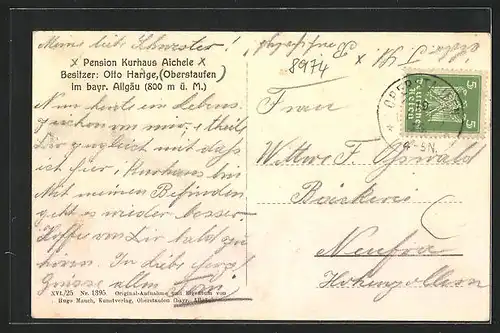 Meine liebe Schwester!
x Pension Kurhaus Aichele x
Besitzer: Otto Hartge, (Oberstaufen)
im bayr. Allgäu (800 m ü. M.)
Nun heute ein Lebens-
zeichen von mir, u. theile
Dir zugleich mit daß
ich hier, Kurhaus bin
Mit meinem Befinden
geht es wieder besser
Hoffe von Dir bald zu
hören. In Liebe
Grüsse allen
XVI./25 Nr. 1395. Original-Aufnahme und Eigentum von
Hugo Mauch, Kunstverlag, Oberstaufen (bayr. Allgäu).
8974
5 5
Deutsches Reich
Frau
Wittwe F. Oswald
Bäckerei
Neufra
Hohenzollern